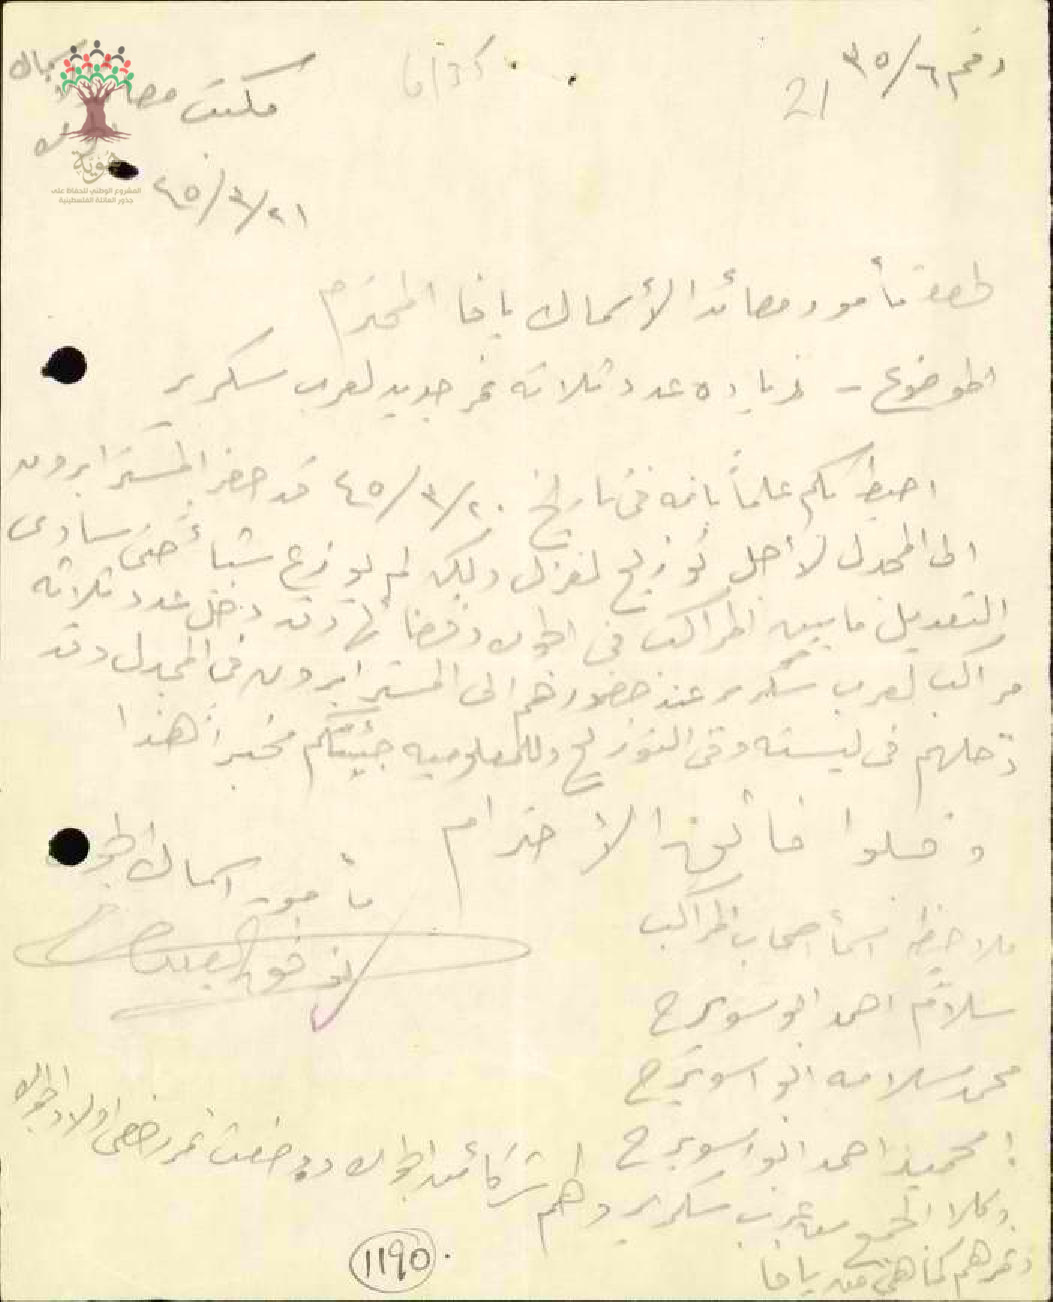 رقم ٣٥/٦
21
مكتب مصا
٤٥/٣/٢١
هوية
المشروع الوطني للحفاظ على
جذور العائلة الفلسطينية
حضرة مأمور مصائد الأسماك يافا المحترم
الموضوع - زيادة عدد ثلاثه نمر جديد لعرب سكرير
احيطكم علماً بانه في تاريخ ٤٥/٣/٢٠ قد حضر المستر ابرون
الى المجدل لأجل توزيع الغزل ولكن لم يوزع شيئاً حتى ساوى
التعديل ما بين المراكب في الجوره وقضائها وقد دخل عدد ثلاثه
مراكب لعرب سكرير عند حضورهم الى المستر ابرون في المجدل وقد
دخلهم في ليسته وفي التوزيع وللمعلوميه جئتكم مخبراً هذا
وقبلوا فائق الاحترام
مأمور اسماك الجوره
ملاحظه اسماء اصحاب المراكب
سلام احمد ابو سويرح
محمد سلامه ابو اسويرح
امحميد احمد ابو اسويرح
وكلا الجمع من عرب سكرير وهم شركاء الجوره
ونمرهم كما هي من يافا
1190